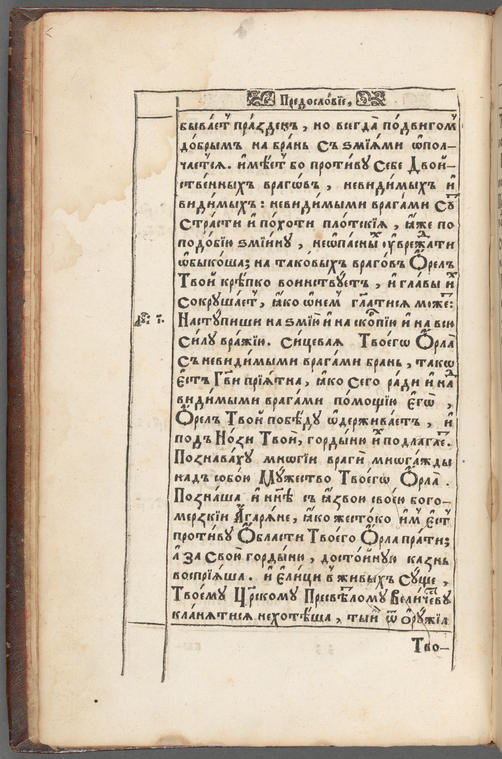 Предословїе,
бываетъ празденъ, но всегда подвигомъ
добрымъ на брань съ ѕмїями ѡпол-
чается. имѣетъ бо противу Себе Двой-
ственныхъ враговъ, невидимыхъ и
видимыхъ: невидимыми врагами Сꙋть
Страсти и похоти плотскїя, ꙗже по
подобїю ѕмїинꙋ, неѡпасныѧ ᲂуврежати
ѡбыкоша; на таковыхъ враговъ Ѻрелъ
Твой крѣпко воинствꙋетъ, и главы ихъ
Сокрушаетъ, ꙗко ѡнемъ глатися може:
Лꙋ: і.
Настꙋпиши на ѕмїю и на скопїю и на всю
Силꙋ вражїю. Сицевая Твоегѡ Ѻрла
Съ невидимыми врагами брань, такѡ
Естъ Гви прїятна, ꙗко Сего ради и на
видимыми врагами помощїю Егѡ,
Ѻрелъ Твой побѣдꙋ ѡдерживаетъ, и
подъ Нози Твои, гордыню ихъ подлагае.
Познавахꙋ мнѡгїи враги мнѡгажды
надъ собою Мꙋжество Твоегѡ Ѻрла.
Познаша и ннѣ съ ꙗзвою своею бого-
мерзкїи Агаряне, ꙗко жестоко имъ Естъ
противꙋ Ѻбласти Твоего Ѻрла прати;
а За Свою гордыню, достойнꙋю казнь
воспрїяша. и Елици в живыхъ Сꙋще,
Твоемꙋ Црскомꙋ Пресвѣломꙋ Величевꙋ
кланятися нехотѣша, тыи ѿ Ѻрꙋжїя
Тво-